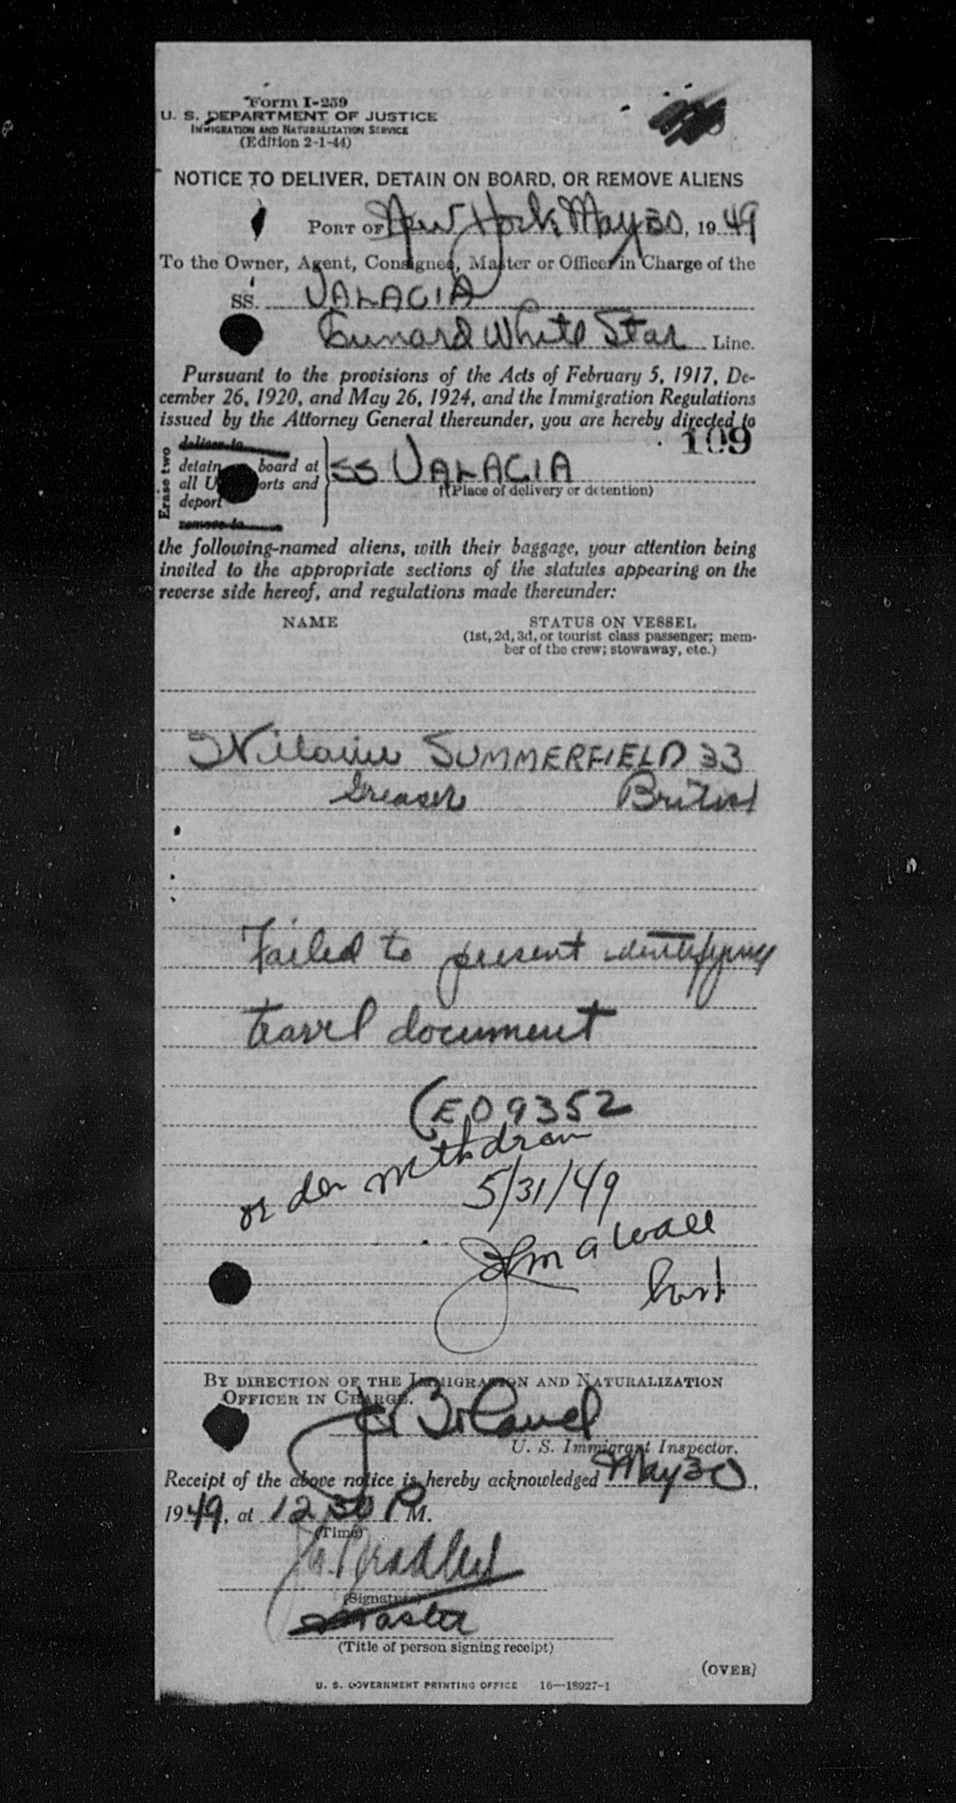 Form I-259
U. S. DEPARTMENT OF JUSTICE
IMMIGRATION AND NATURALIZATION SERVICE
(Edition 2-1-44)
NOTICE TO DELIVER, DETAIN ON BOARD, OR REMOVE ALIENS
PORT OF New York May 30, 1949
To the Owner, Agent, Consignee, Master or Officer in Charge of the
SS. VALACIA
Cunard White Star Line.
Pursuant to the provisions of the Acts of February 5, 1917, De-
cember 26, 1920, and May 26, 1924, and the Immigration Regulations
issued by the Attorney General thereunder, you are hereby directed to
109
Erase two
deliver to
detain board at
all U orts and
deport
remove to
SS VALACIA
(Place of delivery or detention)
the following-named aliens, with their baggage, your attention being
invited to the appropriate sections of the statutes appearing on the
reverse side hereof, and regulations made thereunder:
NAME STATUS ON VESSEL
(1st, 2d, 3d, or tourist class passenger; mem-
ber of the crew; stowaway, etc.)
William SUMMERFIELD 33
Greaser British
Failed to present identifying
travel document
(EO 9352
order withdrawn
5/31/49
John A Wall
BY DIRECTION OF THE IMMIGRATION AND NATURALIZATION
OFFICER IN CHARGE.
U. S. Immigrant Inspector.
Receipt of the above notice is hereby acknowledged May 30,
1949, at 12 30 P M.
(Time)
Bradley
(Signature)
Master
(Title of person signing receipt)
(OVER)
U. S. GOVERNMENT PRINTING OFFICE 16—18927-1